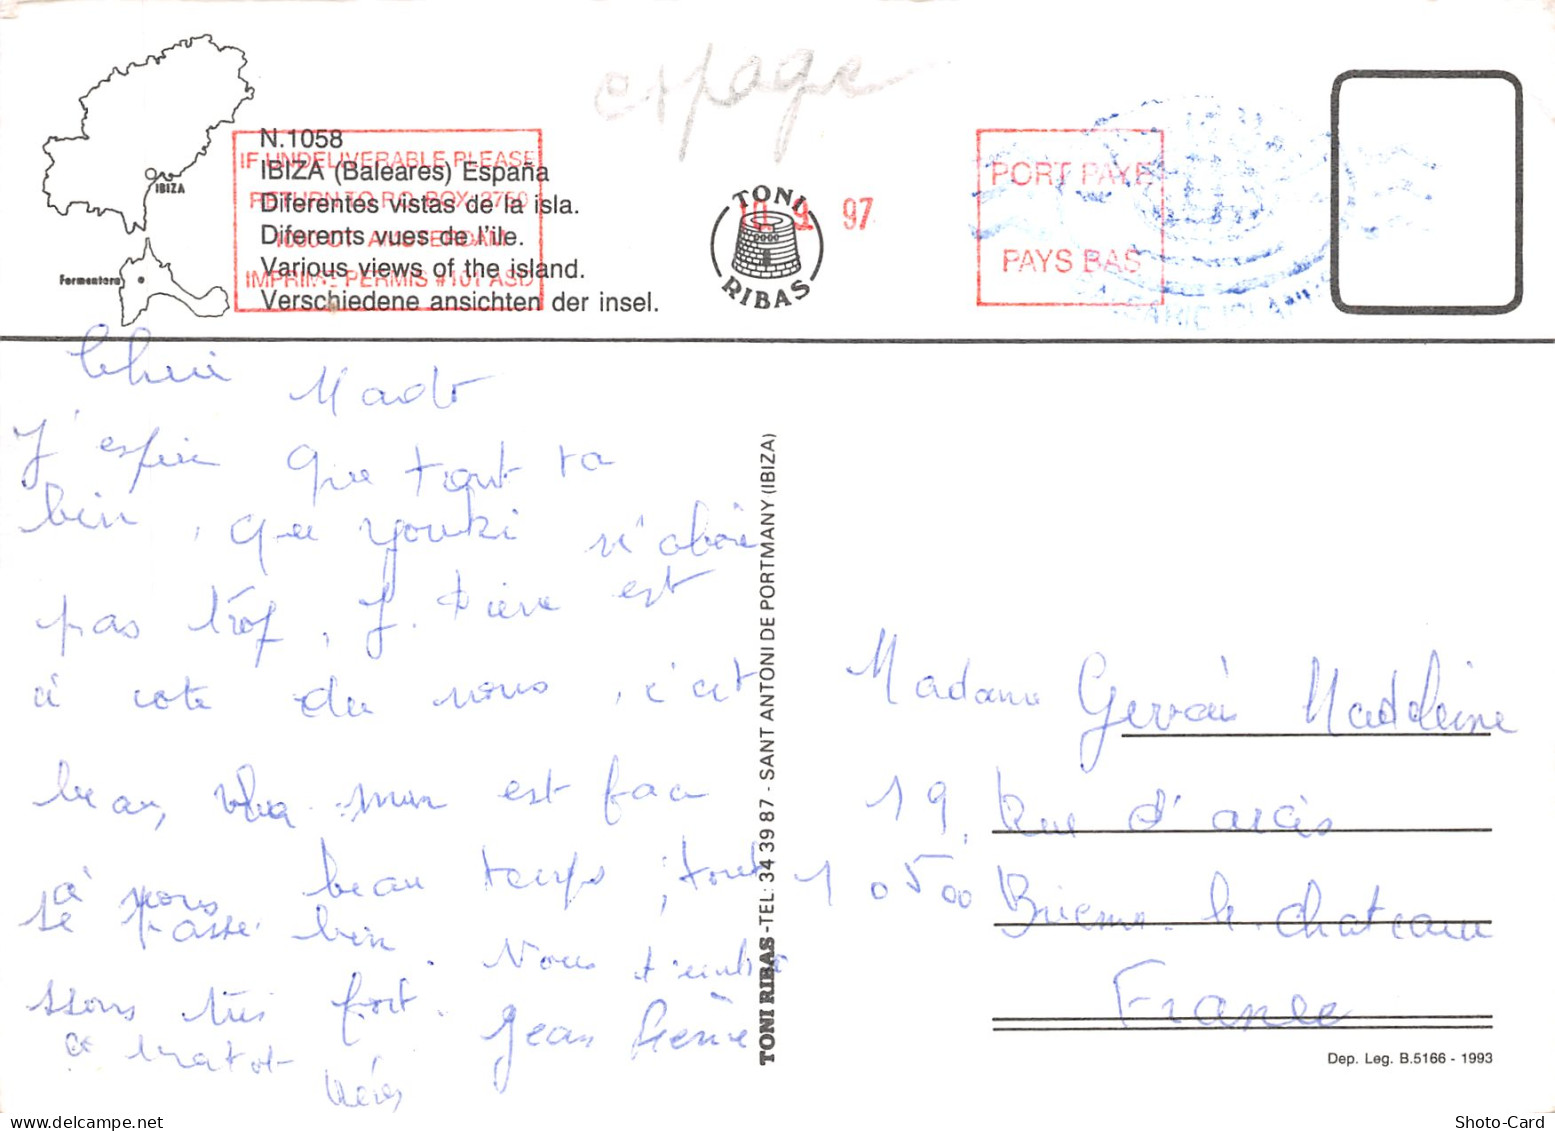 espagne
N.1058
IBIZA (Baleares) España
Diferentes vistas de la isla.
Diferents vues de l'île.
Various views of the island.
Verschiedene ansichten der insel.
IBIZA
Formentera
IF UNDELIVERABLE PLEASE
RETURN TO P.O. BOX
AMSTERDAM
IMPRIME PERMIS #101 ASD
TONI
RIBAS
10 9 97
PORT PAYE
PAYS BAS
Mado
J'espère que tout va
bien, que youki n'aboie
pas trop, J. Pierre est
à coté de nous, c'est
beau,
à nous beau temps, tout
se passe bien. Nous t'embra
ssons très fort. Jean Pierre
TONI RIBAS - TEL: 34 39 87 - SANT ANTONI DE PORTMANY (IBIZA)
Madame Gervais Madeleine
19, Rue d'arcis
10500 Brienne le chateau
France
Dep. Leg. B.5166 - 1993
Shoto-Card